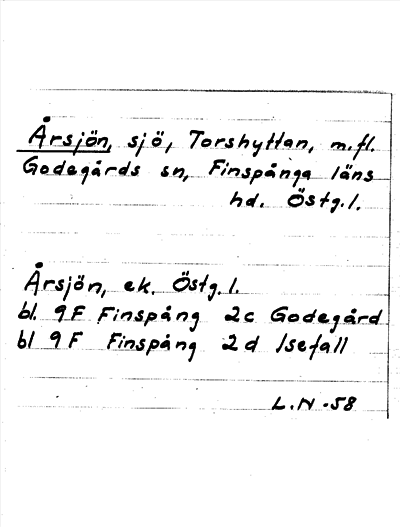 Årsjön, sjö, Torshyttan, m.fl.
Godegårds sn, Finspånga läns
hd. Östg.l.
Årsjön, ek. Östg.l.
bl. 9F Finspång 2c Godegård
bl 9F Finspång 2d Isefall
L.N-58